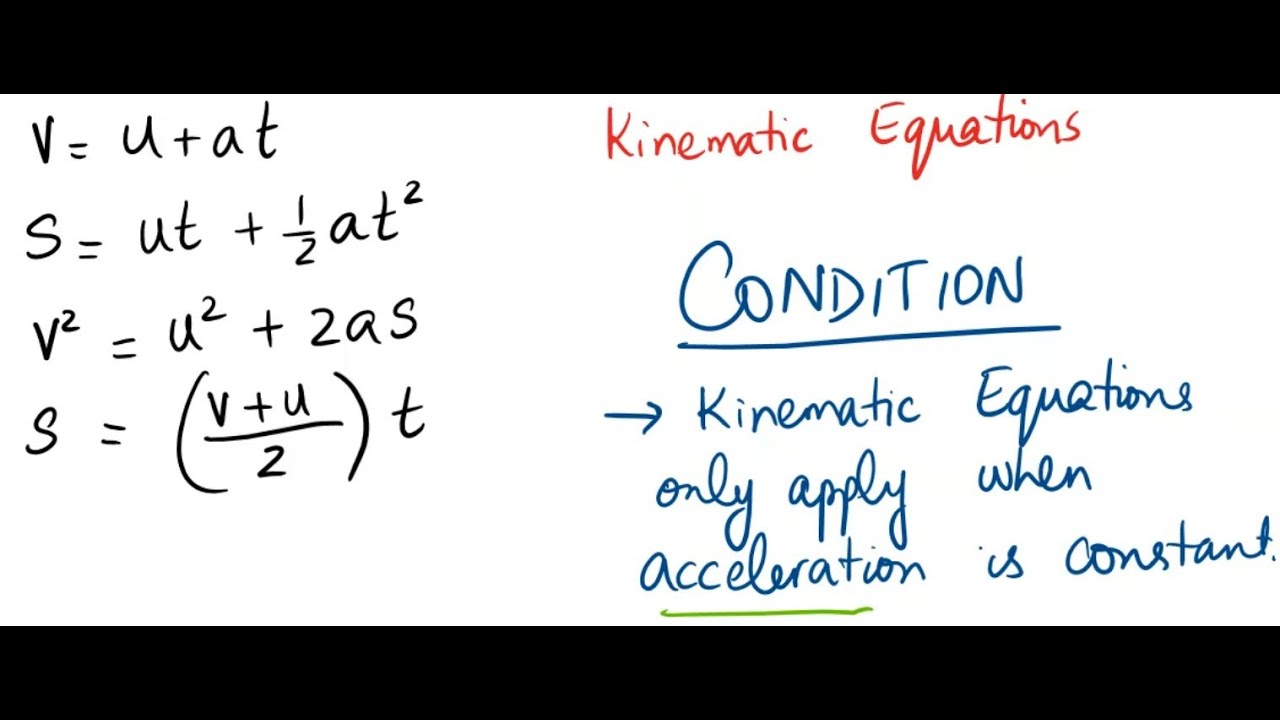 v = u + at
s = ut + 1/2 at²
v² = u² + 2as
s = ((v + u)/2) t
Kinematic Equations
CONDITION
→ Kinematic Equations
only apply when
acceleration is constant.